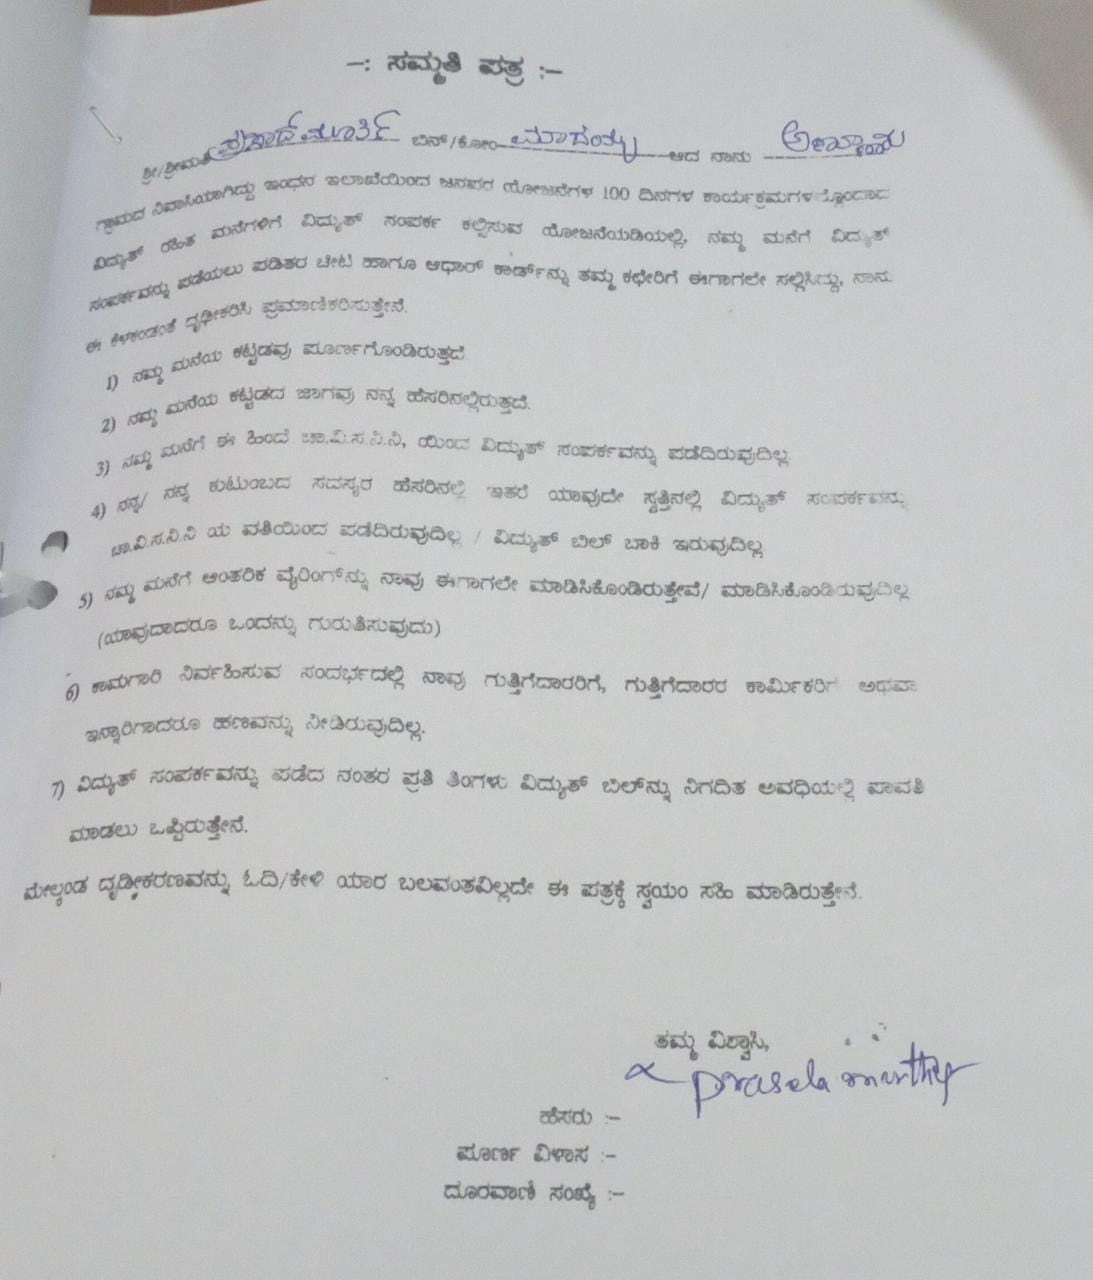 -: ಸಮ್ಮತಿ ಪತ್ರ :-
ಶ್ರೀ/ಶ್ರೀಮತಿ ಪ್ರಸಾದ್ ಮೂರ್ತಿ ಬಿನ್/ಕೋಂ ಮಾದಯ್ಯ ಆದ ನಾನು
ಗ್ರಾಮದ ನಿವಾಸಿಯಾಗಿದ್ದು ಇಂಧನ ಇಲಾಖೆಯಿಂದ ಜನಪರ ಯೋಜನೆಗಳ 100 ದಿನಗಳ ಕಾರ್ಯಕ್ರಮಗಳಲ್ಲೊಂದಾದ
ವಿದ್ಯುತ್ ರಹಿತ ಮನೆಗಳಿಗೆ ವಿದ್ಯುತ್ ಸಂಪರ್ಕ ಕಲ್ಪಿಸುವ ಯೋಜನೆಯಡಿಯಲ್ಲಿ, ನಮ್ಮ ಮನೆಗೆ ವಿದ್ಯುತ್
ಸಂಪರ್ಕವನ್ನು ಪಡೆಯಲು ಪಡಿತರ ಚೀಟಿ ಹಾಗೂ ಆಧಾರ್ ಕಾರ್ಡ್‌ನ್ನು ತಮ್ಮ ಕಛೇರಿಗೆ ಈಗಾಗಲೇ ಸಲ್ಲಿಸಿದ್ದು, ನಾನು
ಈ ಕೆಳಕಂಡಂತೆ ದೃಢೀಕರಿಸಿ ಪ್ರಮಾಣಿಕರಿಸುತ್ತೇನೆ.
1) ನಮ್ಮ ಮನೆಯ ಕಟ್ಟಡವು ಪೂರ್ಣಗೊಂಡಿರುತ್ತದೆ
2) ನಮ್ಮ ಮನೆಯ ಕಟ್ಟಡದ ಜಾಗವು ನನ್ನ ಹೆಸರಿನಲ್ಲಿರುತ್ತದೆ.
3) ನಮ್ಮ ಮನೆಗೆ ಈ ಹಿಂದೆ ಚಾ.ವಿ.ಸ.ನಿ.ನಿ, ಯಿಂದ ವಿದ್ಯುತ್ ಸಂಪರ್ಕವನ್ನು ಪಡೆದಿರುವುದಿಲ್ಲ
4) ನನ್ನ/ ನನ್ನ ಕುಟುಂಬದ ಸದಸ್ಯರ ಹೆಸರಿನಲ್ಲಿ ಇತರೆ ಯಾವುದೇ ಸ್ವತ್ತಿನಲ್ಲಿ ವಿದ್ಯುತ್ ಸಂಪರ್ಕವನ್ನು
ಚಾ.ವಿ.ಸ.ನಿ.ನಿ ಯ ವತಿಯಿಂದ ಪಡೆದಿರುವುದಿಲ್ಲ / ವಿದ್ಯುತ್ ಬಿಲ್ ಬಾಕಿ ಇರುವುದಿಲ್ಲ
5) ನಮ್ಮ ಮನೆಗೆ ಆಂತರಿಕ ವೈರಿಂಗ್‌ನ್ನು ನಾವು ಈಗಾಗಲೇ ಮಾಡಿಸಿಕೊಂಡಿರುತ್ತೇವೆ/ ಮಾಡಿಸಿಕೊಂಡಿರುವುದಿಲ್ಲ
(ಯಾವುದಾದರೂ ಒಂದನ್ನು ಗುರುತಿಸುವುದು)
6) ಕಾಮಗಾರಿ ನಿರ್ವಹಿಸುವ ಸಂದರ್ಭದಲ್ಲಿ ನಾವು ಗುತ್ತಿಗೆದಾರರಿಗೆ, ಗುತ್ತಿಗೆದಾರರ ಕಾರ್ಮಿಕರಿಗೆ ಅಥವಾ
ಇನ್ನಾರಿಗಾದರೂ ಹಣವನ್ನು ನೀಡಿರುವುದಿಲ್ಲ.
7) ವಿದ್ಯುತ್ ಸಂಪರ್ಕವನ್ನು ಪಡೆದ ನಂತರ ಪ್ರತಿ ತಿಂಗಳು ವಿದ್ಯುತ್ ಬಿಲ್‌ನ್ನು ನಿಗದಿತ ಅವಧಿಯಲ್ಲಿ ಪಾವತಿ
ಮಾಡಲು ಒಪ್ಪಿರುತ್ತೇನೆ.
ಮೇಲ್ಕಂಡ ದೃಢೀಕರಣವನ್ನು ಓದಿ/ಕೇಳಿ ಯಾರ ಬಲವಂತವಿಲ್ಲದೇ ಈ ಪತ್ರಕ್ಕೆ ಸ್ವಯಂ ಸಹಿ ಮಾಡಿರುತ್ತೇನೆ.
ತಮ್ಮ ವಿಶ್ವಾಸಿ,
ಹೆಸರು :-
ಪೂರ್ಣ ವಿಳಾಸ :-
ದೂರವಾಣಿ ಸಂಖ್ಯೆ :-